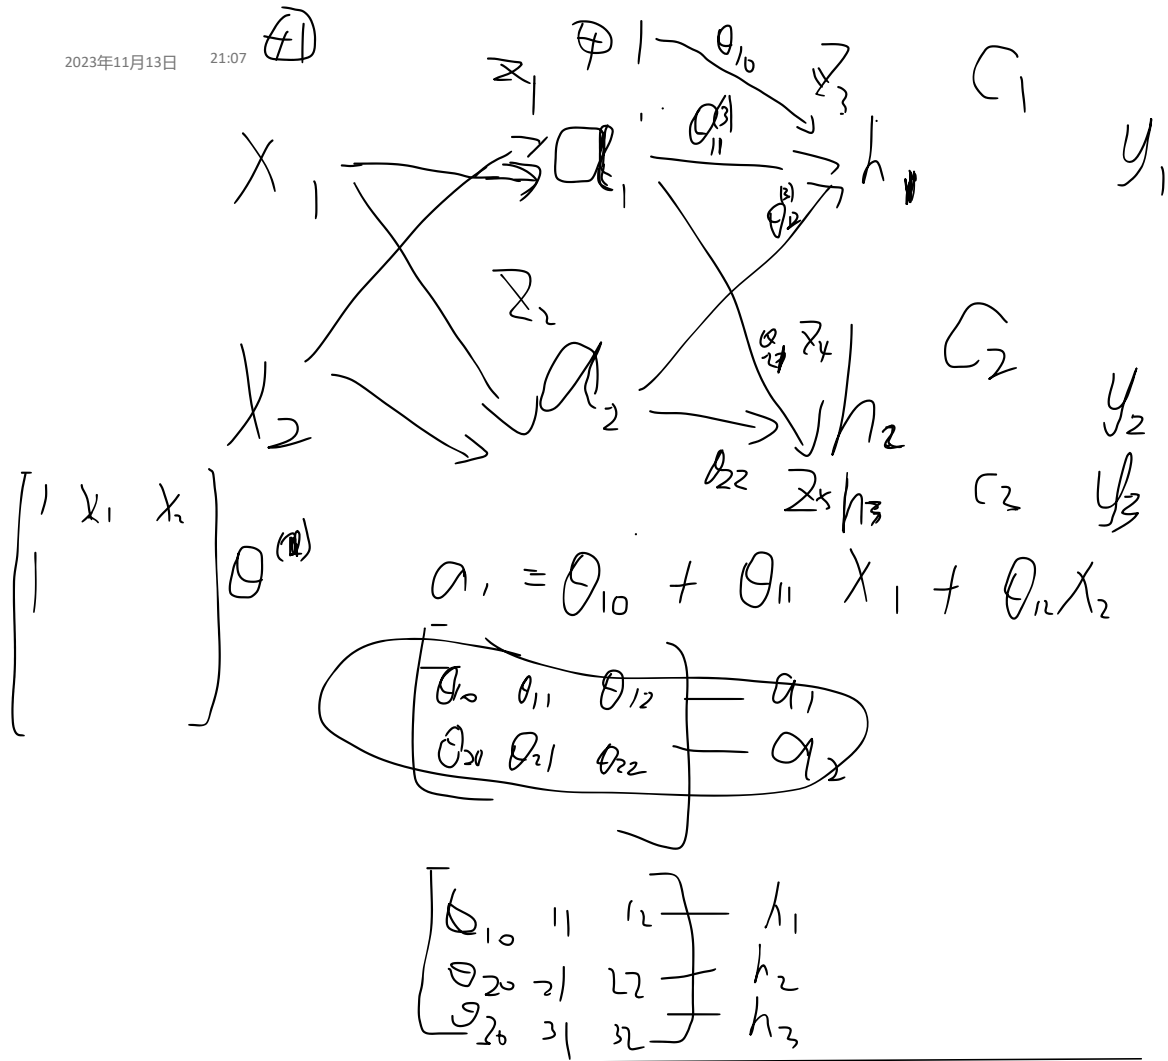 2023年11月13日 21:07 +1
+1 θ₁₀ z₃ C₁
z₁
x₁ a₁ θ₁₁⁽³⁾ h₁ y₁
θ₁₂⁽³⁾
z₂
θ₂₁ z₄ C₂
x₂ a₂ h₂ y₂
θ₂₂ z₅ h₃ C₃ y₃
1 x₁ x₂
1 θ
a₁ = θ₁₀ + θ₁₁ x₁ + θ₁₂ x₂
θ₁₀ θ₁₁ θ₁₂ — a₁
θ₂₀ θ₂₁ θ₂₂ — a₂
θ₁₀ 11 12 — h₁
θ₂₀ 21 22 — h₂
θ₃₀ 31 32 — h₃